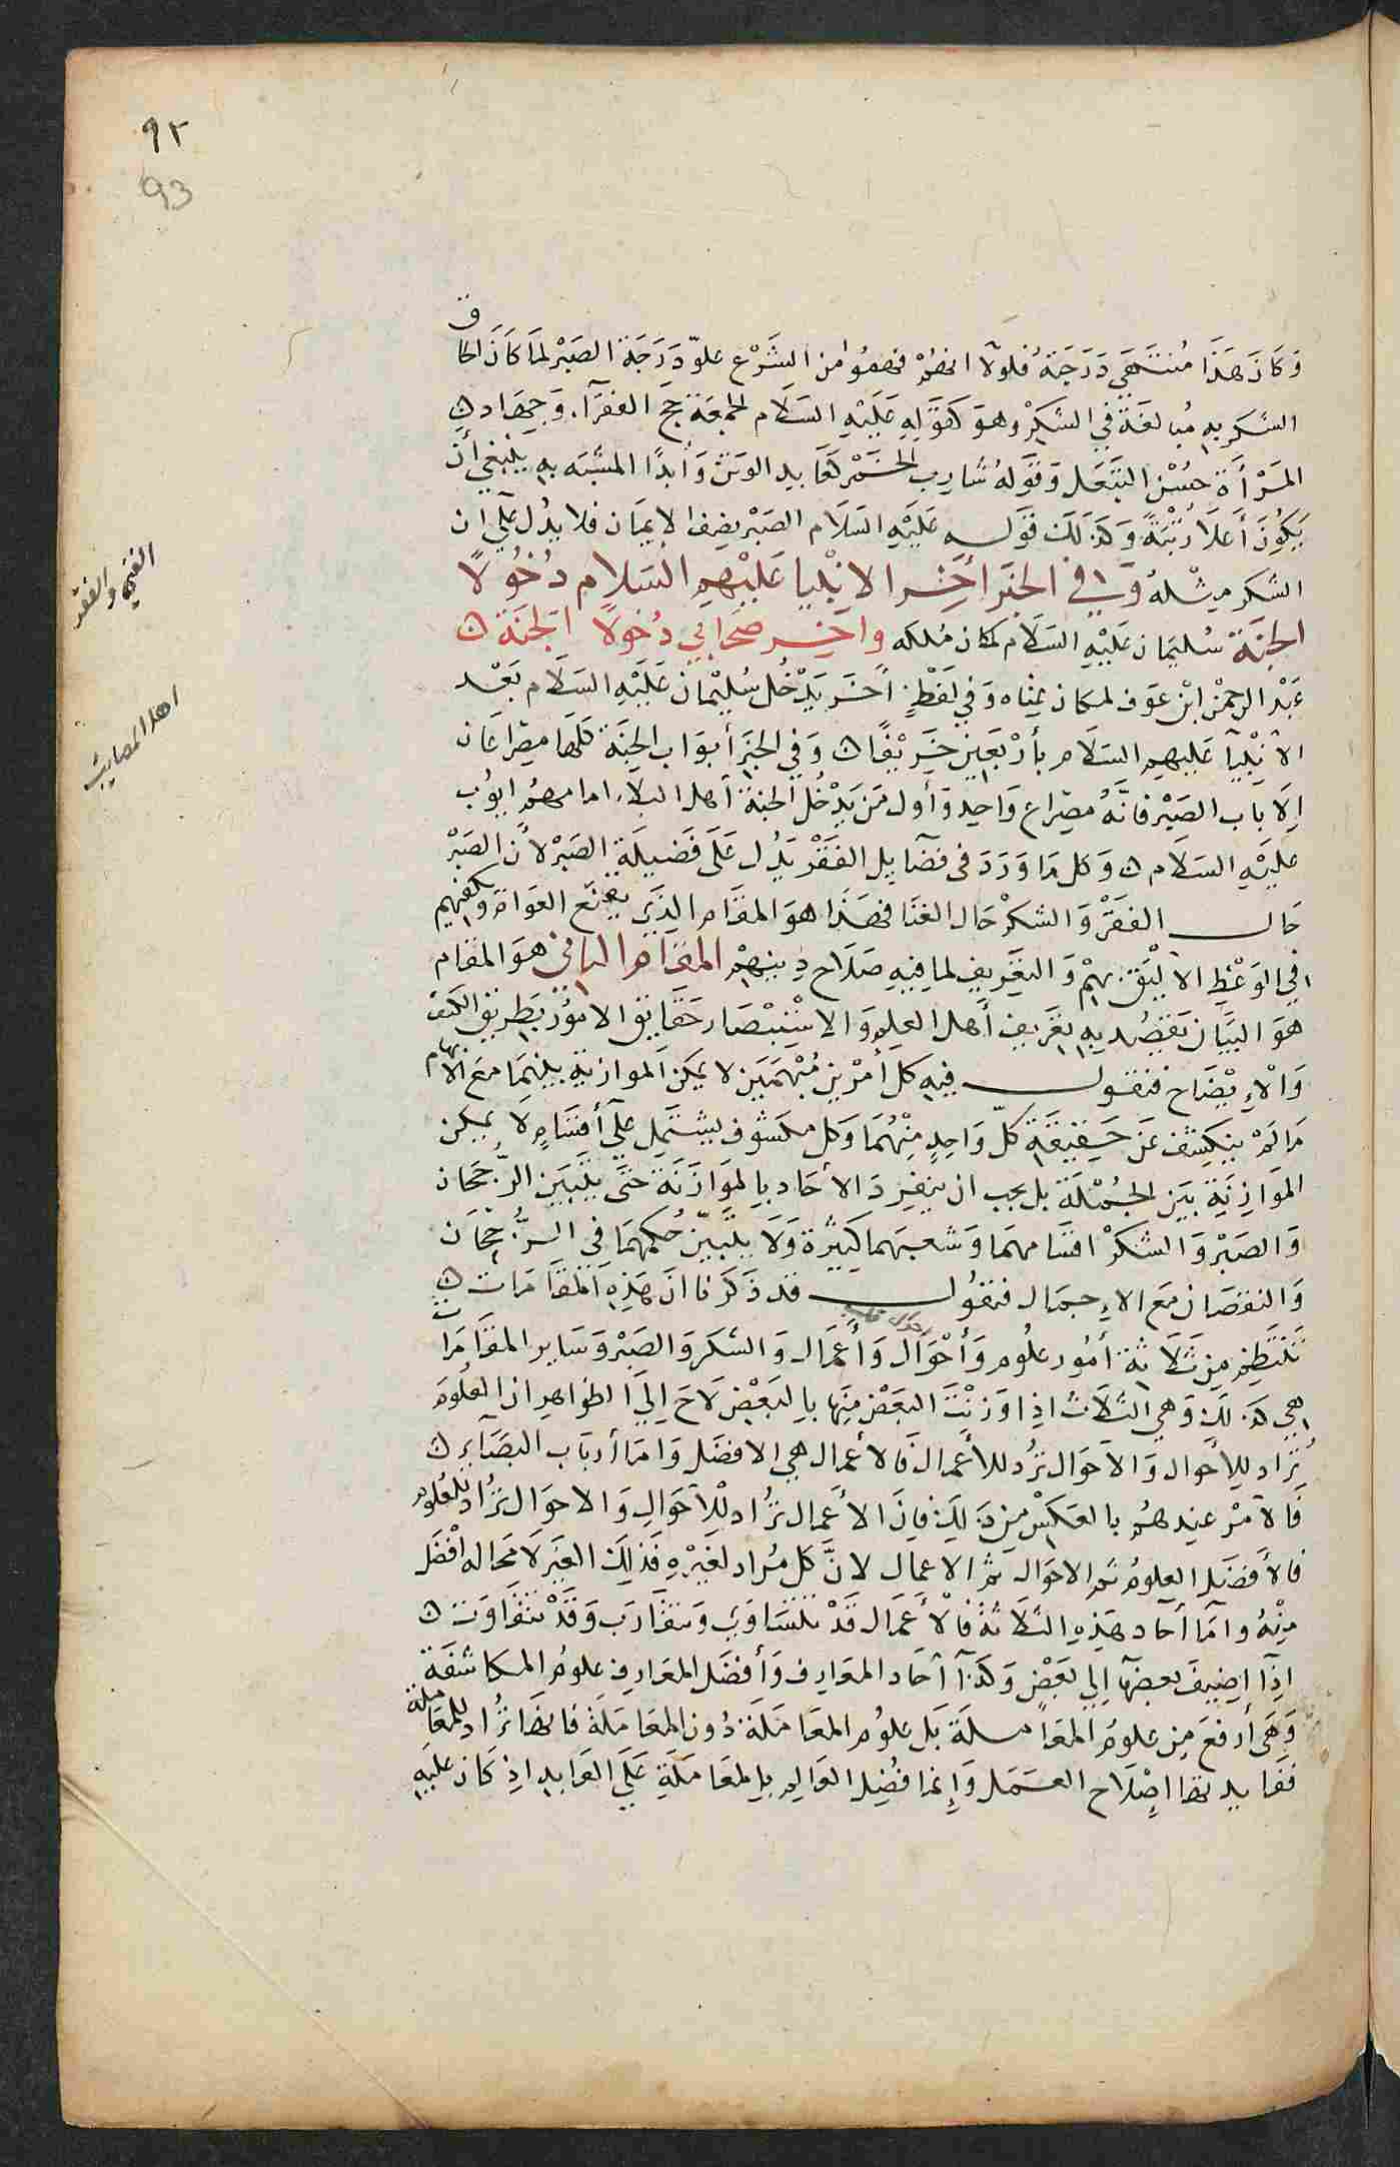 ٩٢
93
وَكَانَ هَذَا مُنْتَهَي دَرَجَتهُ فلولَا انهُمْ فهموُا من الشَرْع علوّ دَرَجَة الصَبْر لمَا كَانَ الحا
ق
الشكر به مُبالغة في الشكرْ وهوَ كقوَله عَلَيْهِ السَلَام الجمعَة حَج الفقرآء وَجهَاد
المَرْأة حسْن التبَعَل وَقوَلهُ شارب الخمْر كعَابد الوَثن وَأبدًا المشبَه به يَنْبَغي أنْ
يَكوُنَ أعلَا رُتْبَةً وَكذَلَك قوَله عَلَيْهِ السَلَام الصَبْر نصف الايمَان فلا يدُل علَي ان
الشكر مثْلهُ وَفي الخبَر أخر الانْبيا عَلَيْهم السَلام دُخُولًا
الجنَة سُليمان عَلَيْهِ السَلَام لمكان مُلكه واخر صَحابي دُخولًا الجنَة
عَبْد الرحمنْ ابْن عوَف لمكان غناه وَفي لفظٍ اخَر يَدْخُل سُليْمَان عَلَيْهِ السَلَام بَعْد
الانْبيآ عَليهم السَلَام بأرْبَعين خَريْفًا وَفي الخبَر أبوَاب الجنَة كلهَا مصْرَاعَان
الَا باب الصَبْر فانَّهُ مصْراع وَاحد وَأول مَن يَدْخُل الجنة أهل البلَاء امامهُم ايوُب
عليَه السَلَام وَكل مَا وَرَدَ في فضَآيل الفَقْر يَدُل عَلَى فَضيلَة الصَبْر لأن الصَبْر
حَال الفقَرْ وَالشكرْ حَال الغنَا فهَذَا هوَ المقَام الذَي يقنع العوَام وَيكفيهم
في الوَعْظ الاليَق بهمْ وَالتعَريف لما فيهِ صَلَاح دِينهمْ المقَام الثاني هوَ المقَام
هوَ البيَان نَقصُد به تعَريف أهل العلم وَالاسْتبْصَار حَقَايق الامُور بَطريق الكشف
وَالْإيْضَاح فنقول فيهِ كل أمْرَين مُبْهمَين لا يمكن المَوازنة بينهمَا مَع الابهام
مَا لمْ ينكشف عَن حَقيقَة كلّ وَاحدٍ منْهُمَا وَكل مكشوف يشتَمل علَى أقسَامٍ لَا يمكن
المَوازنَة بيَن الجُمْلَة بل يجب ان ينفرد الآحَاد بالموَازنَة حَتَى يَتبيَن الرّجحَان
وَالصَبْر وَالشكرْ اقسامهمَا وَشعبهمَا كثيرُة وَلَا يتَبيّن حُكمهمَا في الرُّجْحَان
وَالنقصَان مَع الإجمَال فنقُول قد ذكَرنا انَ هَذِه المقَامَات
تَنتَظم مِن ثَلَاثة أمُور علوُم وَأحْوَال وَأعمَال وَالشكَر وَالصَبْر وَسَاير المقَامَا
ت
هي كذَلك وَهي الثلَاث اذا وَزنْتَ البعَض منَها بالبعَض لَاحَ الَي الظواهر ان العلُومَ
تُرَاد للأحوال وَالاحَوَال تُرَد للأعمَال فَالأعمال هي الافضَل وَامَا أربَاب البصَآير
فَالَامْر عندهُم بالعَكس من ذَلك فانَ الأعمَال ترَُاد للأحَوَال وَالاحوَال ترَُاد للعُلوُم
فالأفضَل العلومُ ثم الاحوَال ثم الاعمال لانَّ كل مُراد لغَيْرهِ فذَلك الغَير لا محَاله أفْضَل
مِنْهُ وامَا آحاد هَذِهِ الثلَاثةُ فالأعَمَال قَدْ تتَسَاوَي وَتتقَارَب وَقَدْ تتفَاوَت
اذَا اضيفَ بعضهَا الي بَعْض وَكذَا آحَاد المعَارف وَأفضَل المعَارف علوُم المكاشفَة
وَهَي أرفعَ من علومُ المعَامَلَة بَل علوُم المعَامَلة دُون المعَامَلة فَانهَا ترَُاد للمعَا
ملة
ففَايدتهَا اصِْلَاح العَمَل وَإنما فضِل العَالم بالمعَامَلة عَلَى العَابد اذ كانَ علمه
الغني والفقر
اهل المصايب